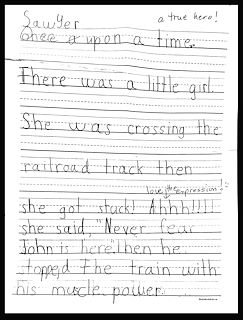 Sawyer
a true hero!
once a upon a time.
There was a little girl.
She was crossing the
railroad track then
love the expression!
she got stuck! Ahhh!!!!
she said, "Never fear
John is here". then he
stopped The train with
his muscle power.